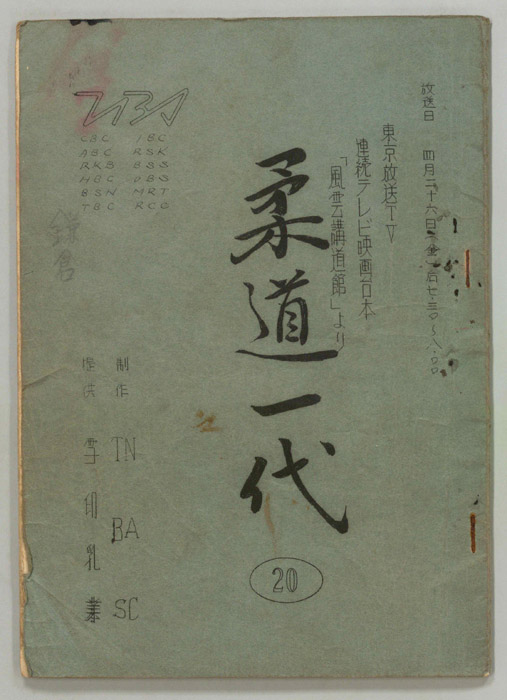 放送日 四月二十六日(金)后七・三〇〜八・〇〇
東京放送TV
連続テレビ映画台本
「風雲講道館」より
柔道一代
20
TBS
CBC IBC
ABC RSK
RKB SBS
HBC OBS
BSN MRT
TBC RCC
鎌倉
制作 TBS NAC
提供 雪印乳業